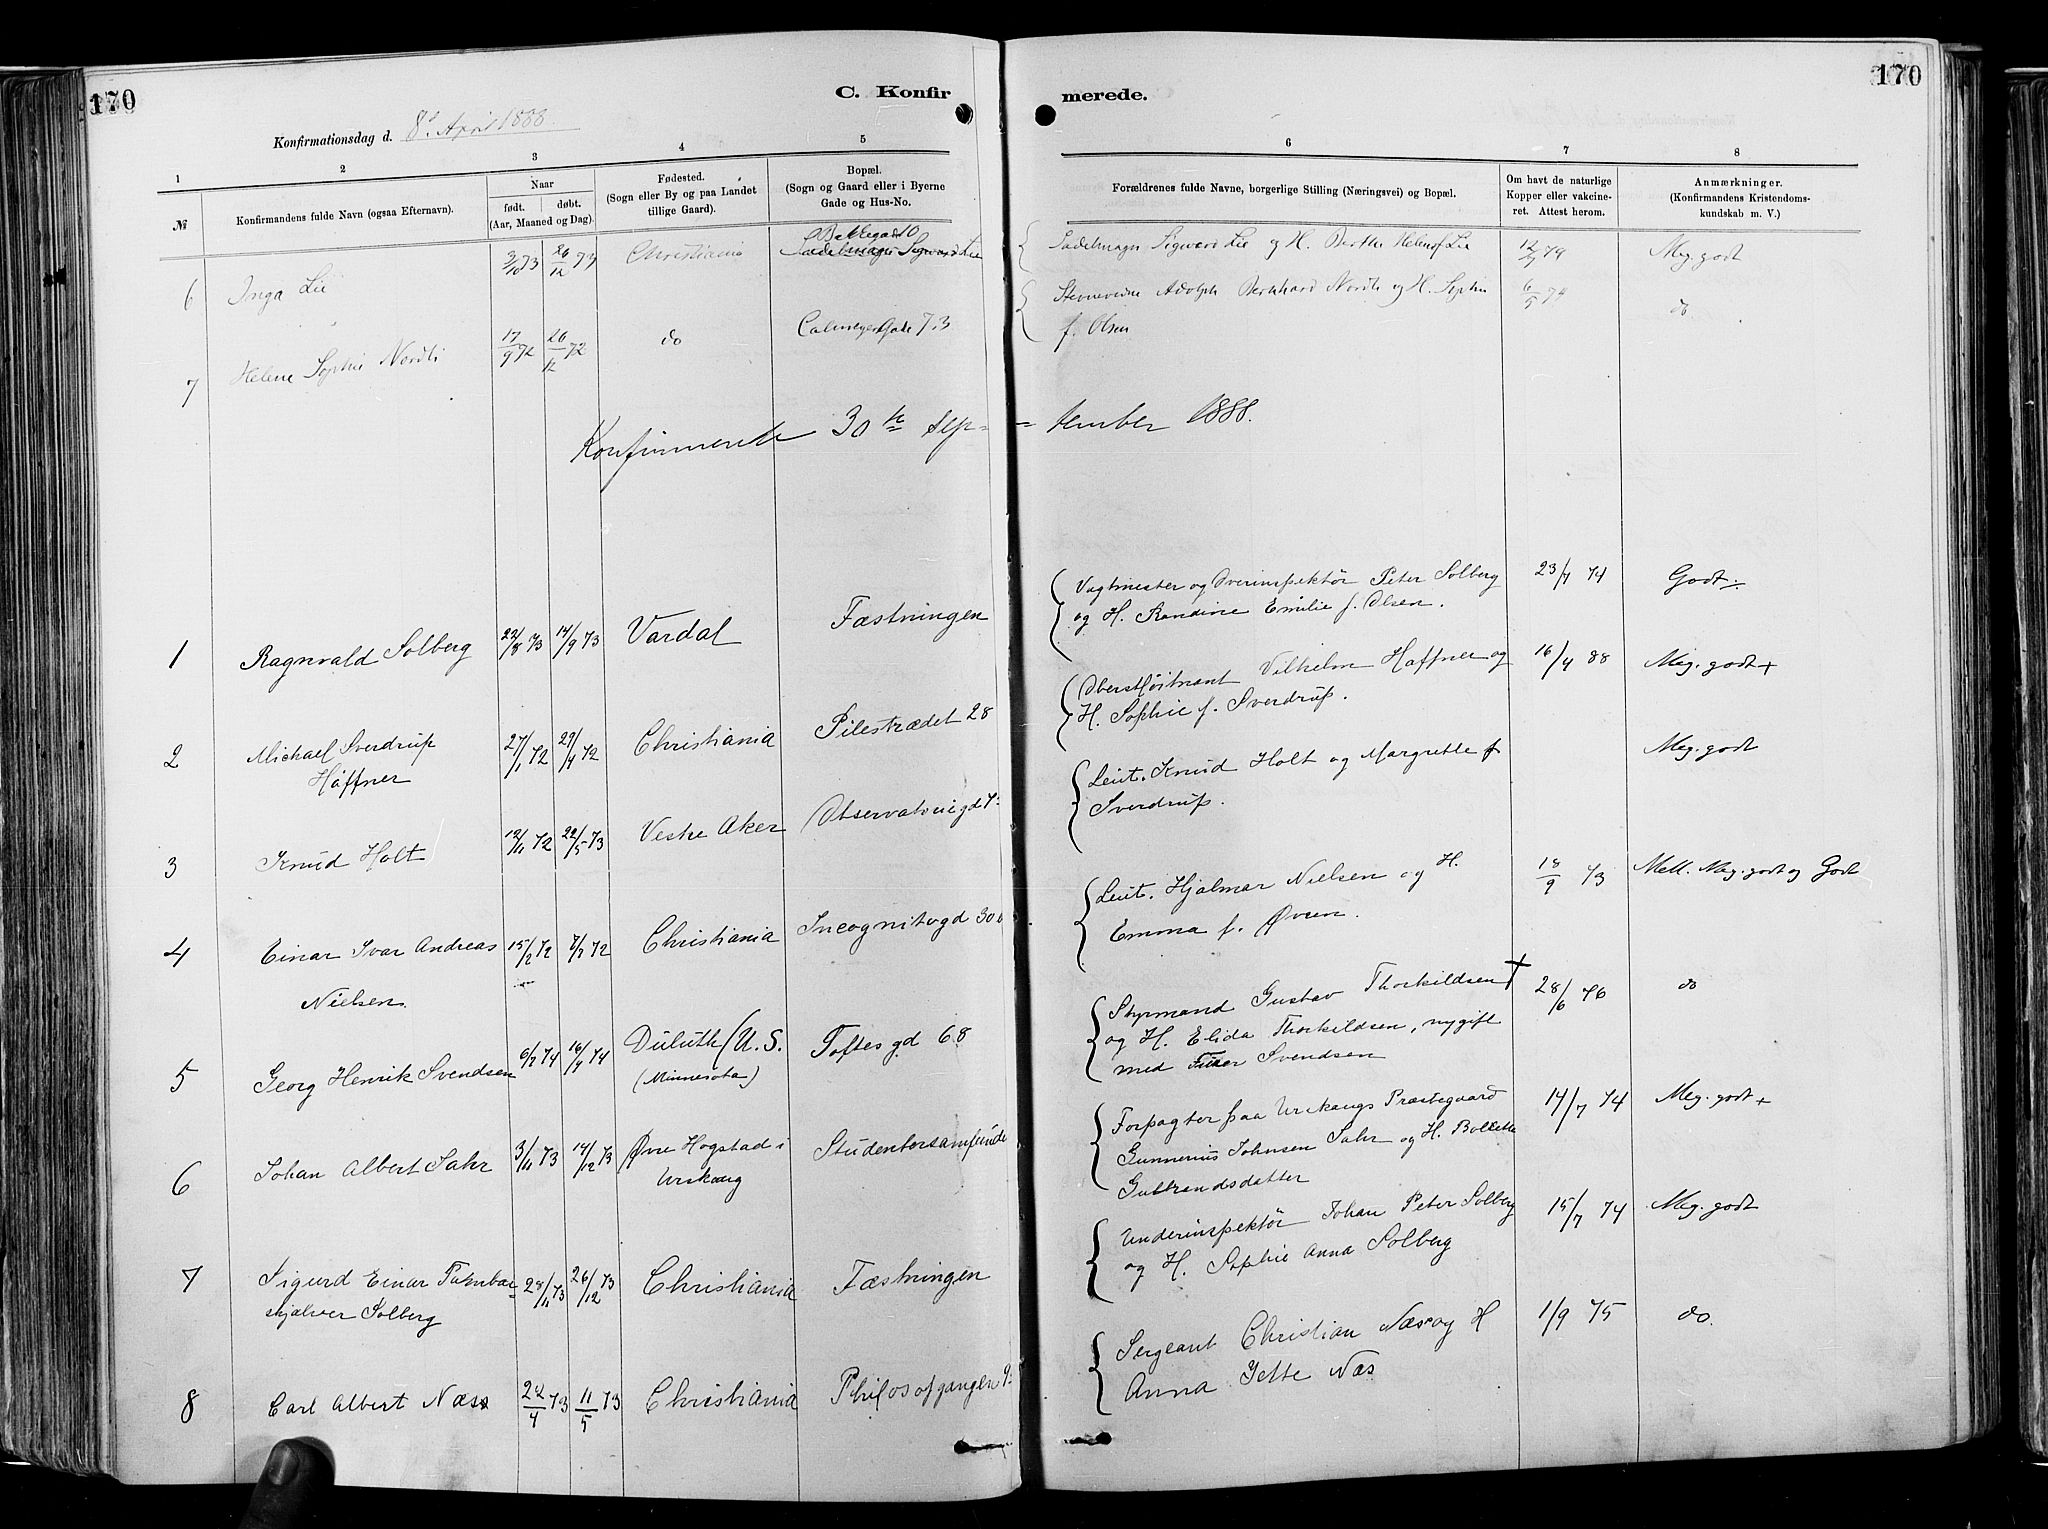 170
170
C. Konfirmerede.
Konfirmationsdag d. 8de April 1888
1 2 3 4 5 6 7 8
№
Konfirmandens fulde Navn (ogsaa Efternavn).
Naar
født. døbt.
(Aar, Maaned og Dag).
Fødested.
(Sogn eller By og paa Landet
tillige Gaard).
Bopæl.
(Sogn og Gaard eller i Byerne
Gade og Hus-No.
Forældrenes fulde Navne, borgerlige Stilling (Næringsvei) og Bopæl.
Om havt de naturlige
Kopper eller vakcineret.
Attest herom.
Anmærkninger.
(Konfirmandens Kristendomskundskab
m. V.)
6 Inga Lie 3/10 73 26/12 73 Christiania
Bakkegad 10
Sadelmager Sigward Lie
Sadelmager Sigward Lie og H. Berthe Helene f Lie 12/7 79 Meg. godt
7 Helene Sophie Nordli 17/9 72 26/12 72 do Calmeyer Gade 7.3
Stevnevidne Adolph Bernhard Nordli og H. Sophie
f. Olsen 6/5 74 do
Konfirmerede 30te September 1888.
1 Ragnvald Solberg 22/8 73 14/9 73 Vardal Fæstningen
Vagtmester og Overinspektør Peter Solberg
og H. Randine Emilie f. Olsen. 23/7 74 Godt.
2 Michael Sverdrup
Haffner 27/1 72 29/4 72 Christiania Pilestrædet 28
Oberstløitnant Vilhelm Haffner og
H. Sophie f. Sverdrup. 16/4 88 Meg. godt +
3 Knud Holt 12/11 72 22/5 73 Vestre Aker Observatoriegd
Leut. Knud Holt og Margrethe f
Sverdrup. Meg. godt
4 Einar Ivar Andreas
Nielsen. 15/2 72 72 Christiania Incognitogd 30 b
Leut. Hjalmar Nielsen og H.
Emma f. Øvren. 18/9 73 Mell. Meg. godt og Godt
5 Georg Henrik Svendsen 74 74 Duluth (U.S.
(Minnesota) Toftes gd 68
Styrmand Gustav Thorkildsen †
og H. Elida Thorkildsen, nygift
med Svendsen 28/6 76 do
6 Johan Albert Sahr 3/11 73 14/12 73 Øvre Hogstad i
Urskoug Studentersamfundet
Forpagter paa Urskougs Præstegaard
Gunnerius Johnsen Sahr og H. Bollette
Gulbrandsdatter 14/7 74 Meg. godt +
7 Sigurd Einar Tambar-
skjælver Solberg 28/11 73 26/12 73 Christiania Fæstningen
Underinspektør Johan Peter Solberg
og H. Sophie Anna Solberg 15/7 74 Meg. godt
8 Carl Albert Næss 24/4 73 11/5 73 Christiania Philosofgangen 9
Sergeant Christian Næs og H
Anna Jette Næs 1/9 75 do.